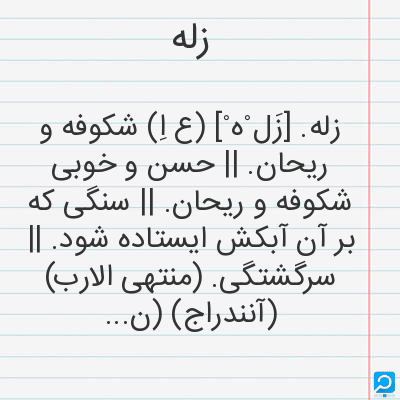 زله
زله. [زَل ْه ْ] (ع اِ) شکوفه و
ریحان. || حسن و خوبی
شکوفه و ریحان. || سنگی که
بر آن آبکش ایستاده شود. ||
سرگشتگی. (منتهی الارب)
(آنندراج) (ن...